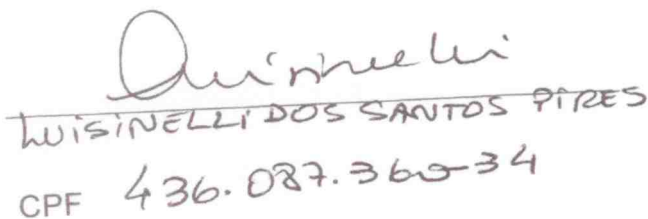 Luisinelli
LUISINELLI DOS SANTOS PIRES
CPF 436.087.360-34